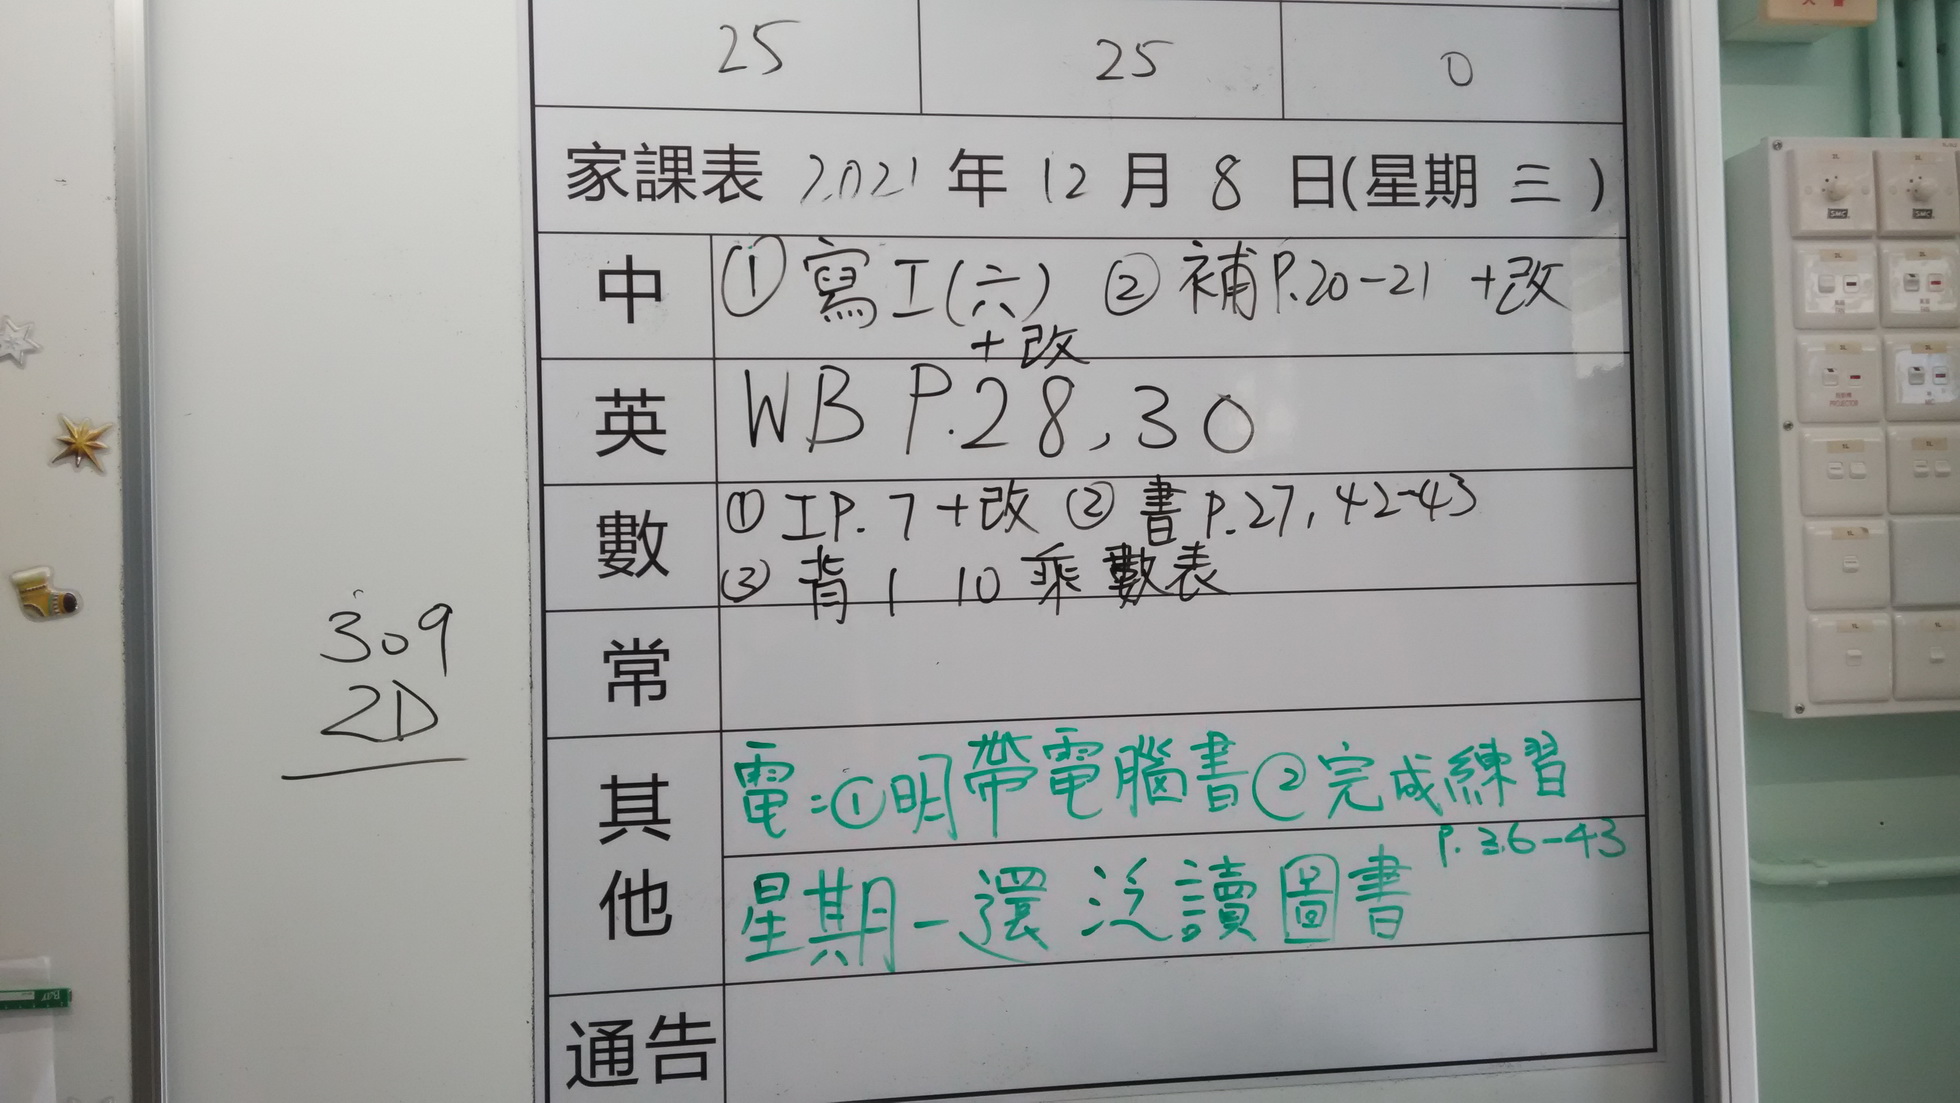 25 25 0
家課表 2021 年 12 月 8 日(星期 三 )
中 ① 寫工(六) ② 補P.20-21 +改
+改
英 WB P.28, 30
數 ① 工P. 7 +改 ② 書P.27, 42-43
③ 背 1 10 乘數表
常
其他 電:①明帶電腦書②完成練習
P.36-43
星期一還 泛讀圖書
通告
309
2D